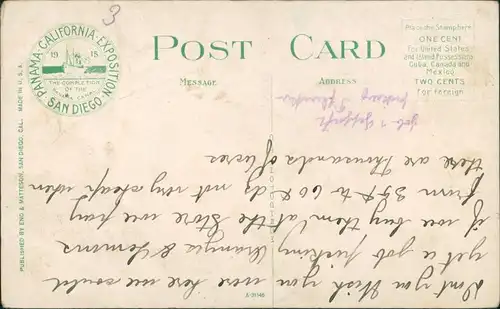 3
PANAMA-CALIFORNIA-EXPOSITION
1915
THE COMPLETION
OF THE
PANAMA CANAL
SAN DIEGO
POST CARD
MESSAGE
ADDRESS
Place the Stamp here
ONE CENT
for United States
and Island Possessions
Cuba, Canada and
Mexico
TWO CENTS
for Foreign
PUBLISHED BY ENO & MATTESON, SAN DIEGO, CAL. MADE IN U. S. A.
A-31146
Dont you Wish you were here we could
get a job picking Oranges & Lemons
if we buy them at the Store we pay
from 35¢ to 60¢ dz not very cheap when
there are thousands of acres